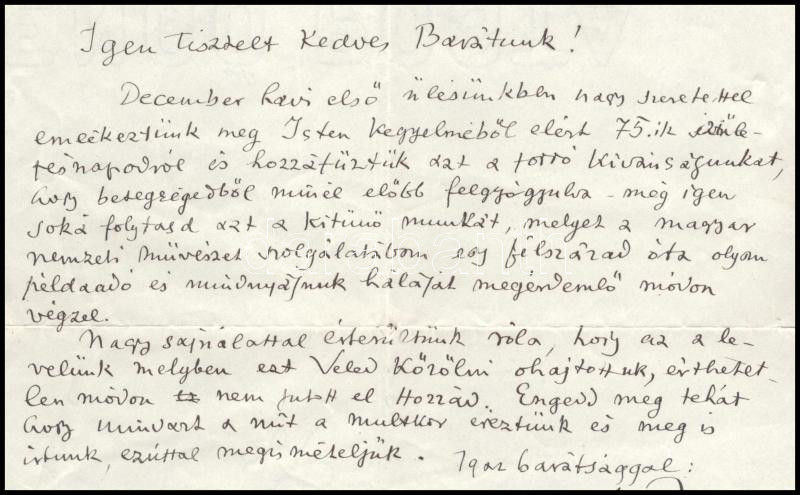 Igen Tisztelt Kedves Barátunk!
December havi első ülésünkben nagy szeretettel
emlékeztünk meg Isten Kegyelméből elért 75.ik szüle-
tésnapodról és hozzáfűztük azt a forró Kívánságunkat,
hogy betegségedből minél előbb felgyógyulva - még igen
soká folytasd azt a kitünő munkát, melyet a magyar
nemzeti művészet szolgálatában egy félszázad óta olyan
példaadó és mindnyájunk háláját megérdemlő módon
végzel.
Nagy sajnálattal értesültünk róla, hogy az a le-
velünk melyben ezt Veled Közölni ohajtottuk, érthetet-
len módon nem jutott el Hozzád. Engedd meg tehát
hogy mindazt a mit a multkor éreztünk és meg is
irtunk, ezúttal megismételjük. Igaz barátsággal: